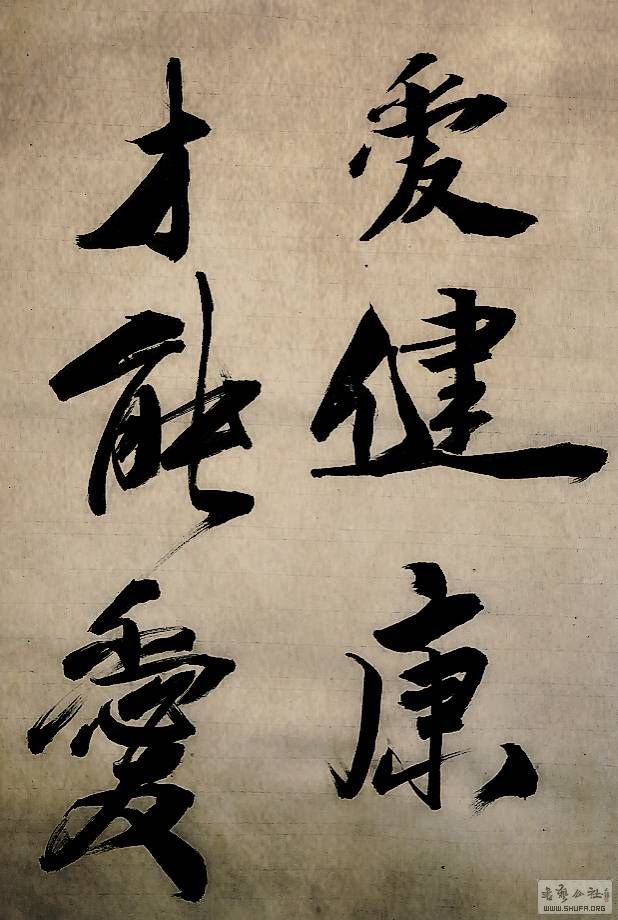 爱健康
才能愛
書藝公社
WWW.SHUFA.ORG